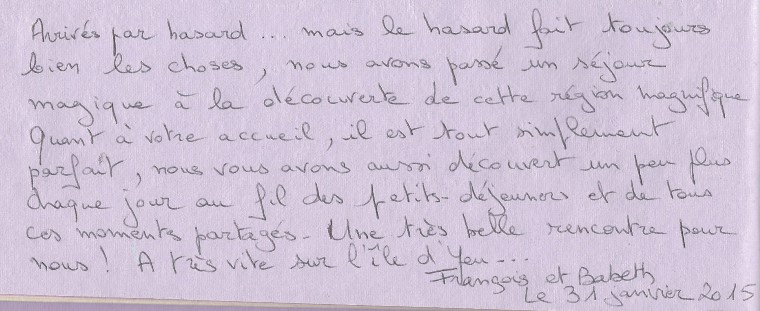 Arrivés par hasard ... mais le hasard fait toujours
bien les choses, nous avons passé un séjour
magique à la découverte de cette région magnifique
Quant à votre accueil, il est tout simplement
parfait, nous vous avons aussi découvert un peu plus
chaque jour au fil des petits-déjeuners et de tous
ces moments partagés - Une très belle rencontre pour
nous ! A très vite sur l'île d'Yeu ---
François et Babeth
Le 31 janvier 2015